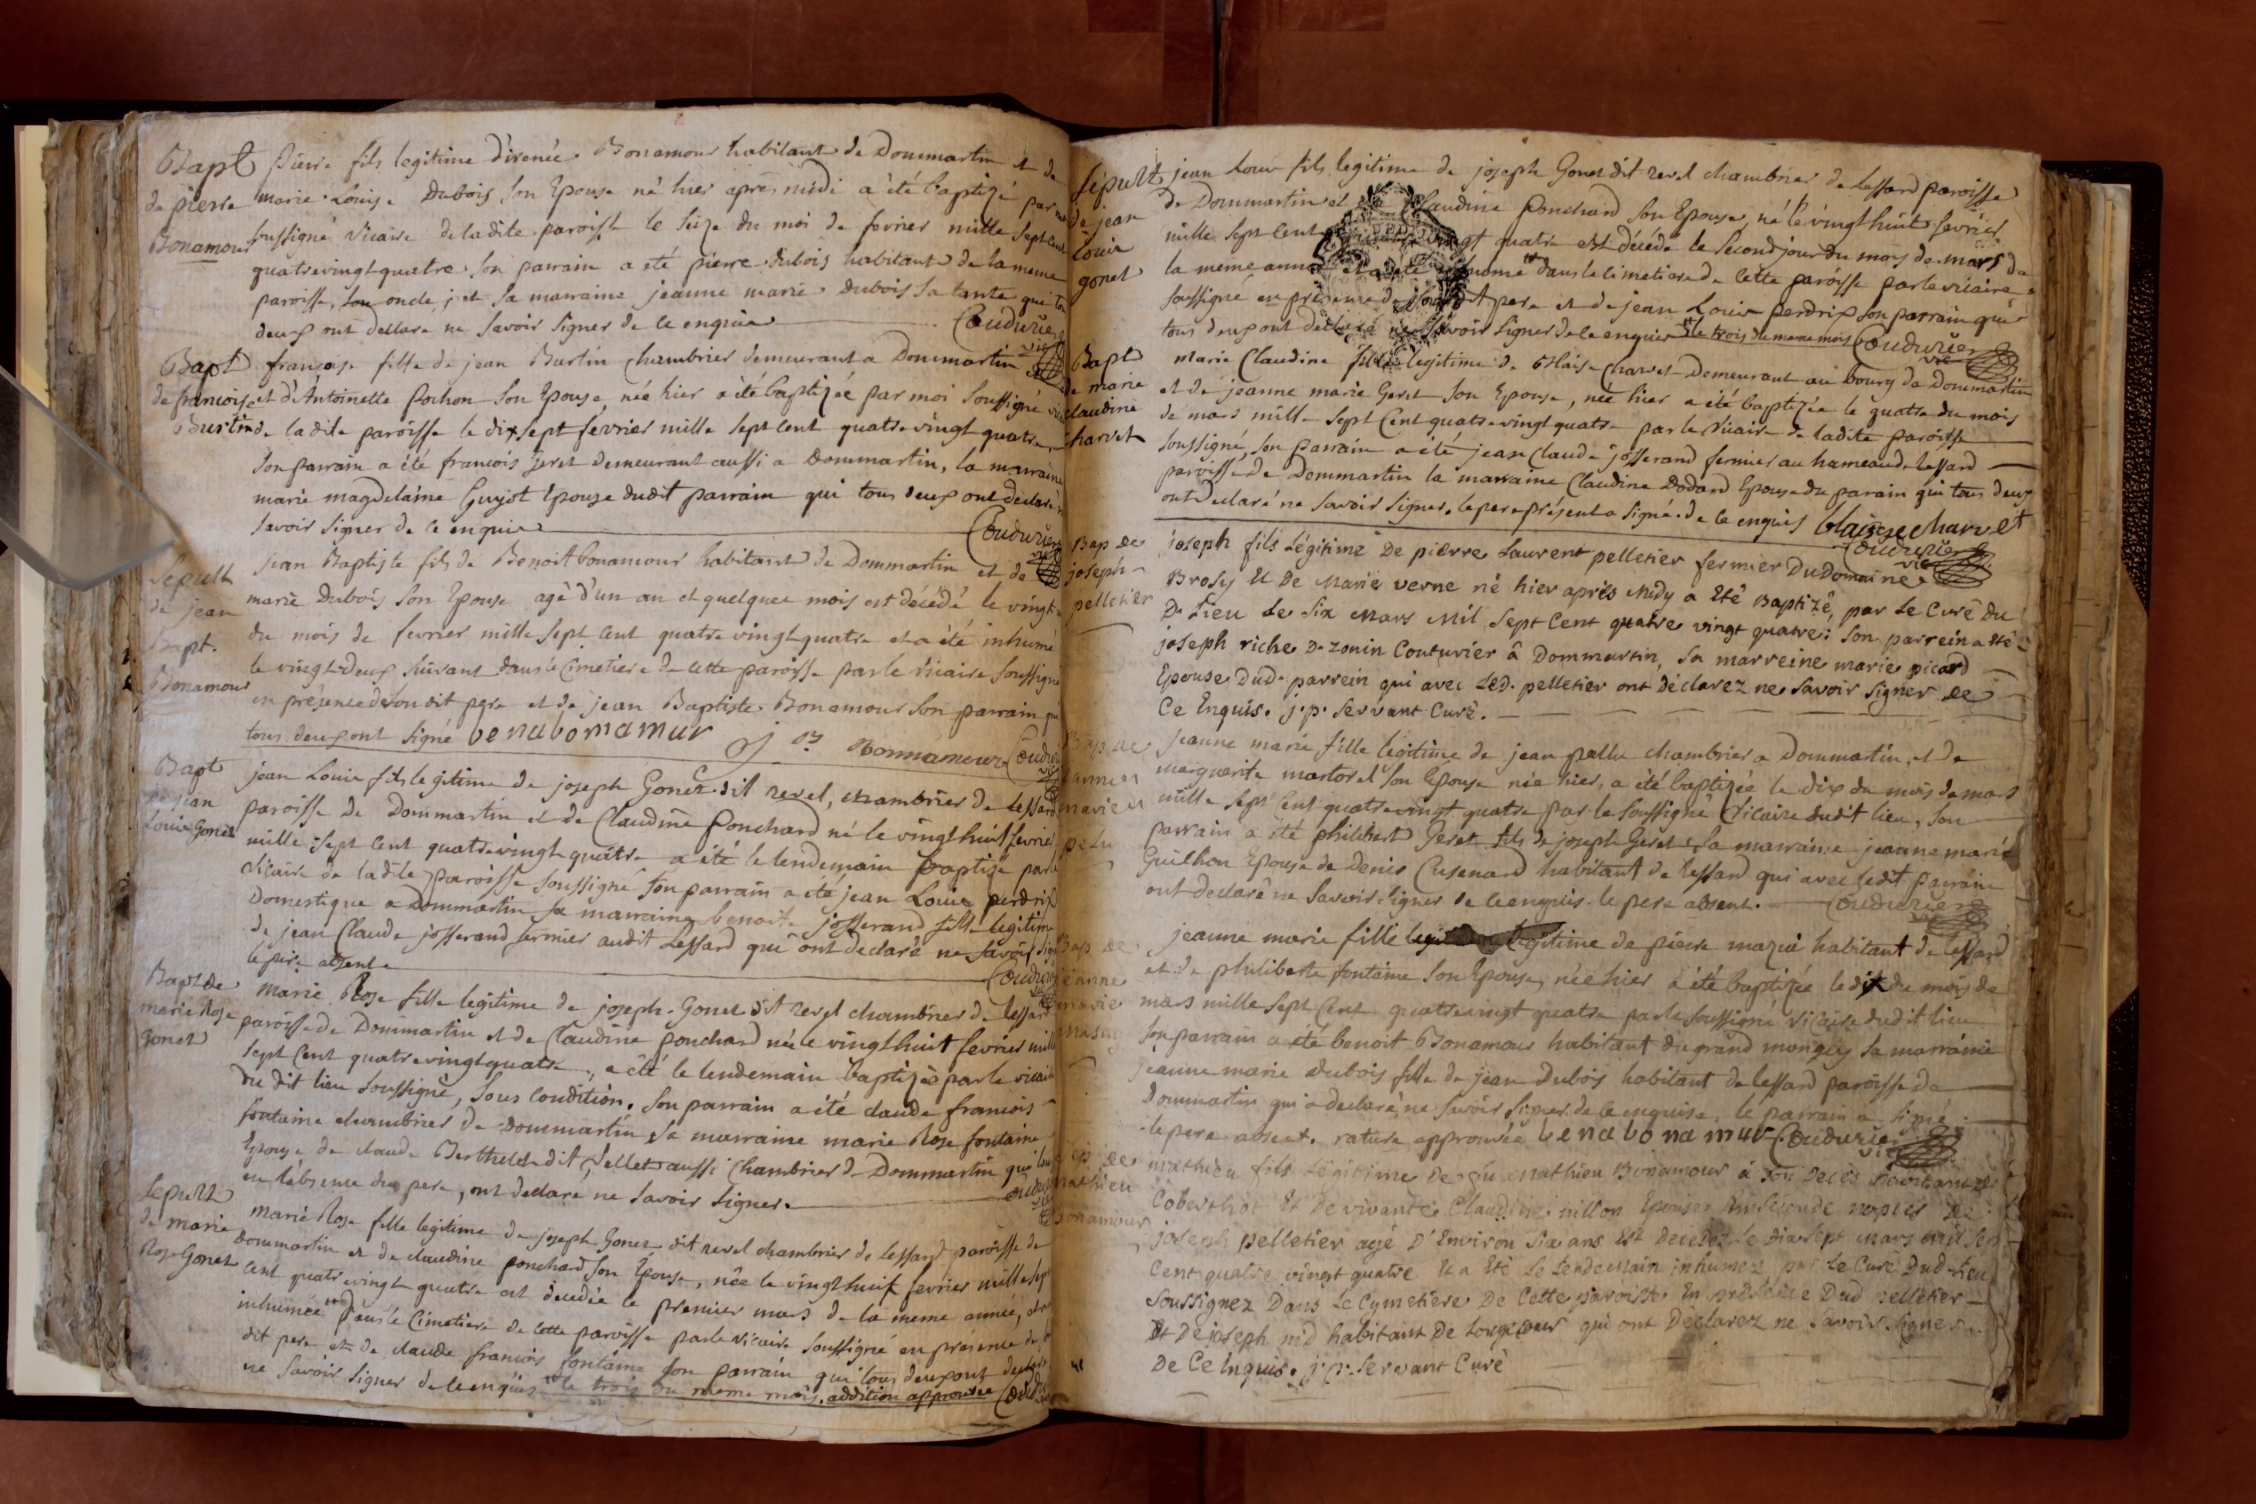 Bapt
de pierre
Bonamour
pierre fils legitime d'irenée Bonamour habitant de Dommartin et de
marie Louise Dubois son Epouse né hier apres midi a été baptizé par
soussigné vicaire de ladite paroisse le seize du moi de fevrier mille sept cent
quatrevingt quatre son parrain a été pierre dubois habitant de la meme
paroisse, son oncle, et sa marraine jeanne marie dubois sa tante qui
deux ont declaré ne savoir signer de ce enquis Couduriér
Bapt
de francoise
Burtin
francoise fille de jean Burtin chambrier demeurant a Dommartin
et d'Antoinette pochon son Epouse, née hier a été baptizée par moi soussigné
de ladite paroisse le dix sept fevrier mille sept cent quatre vingt quatre
son parrain a été francois jeret demeurant aussi a dommartin, la marraine
marie magdelaine Guyot Epouse dudit parrain qui tous deux ont declaré
savoir signer de ce enquis Couduriér
Sepult
de jean
Bapt.
Bonamour
jean Baptiste fils de Benoit bonamour habitant de Dommartin et de
marie Dubois son Epouse agé d'un an et quelques mois est décédé le vingt
du mois de fevrier mille sept cent quatre vingt quatre et a été inhumé
le vingt deux suivant dans le Cimetiere de cette paroisse par le vicaire soussigné
en présence de son dit pere et de jean Baptiste Bonamour son parrain
tous deux ont signé benabonamur j B Bonnamour
Bapt
de jean
Louis Gonet
jean Louis fils legitime de joseph Gonet dit revel, chambrier de Lessard
paroisse de Dommartin et de Claudine Ponchard né le vingt huit fevrier
mille sept cent quatrevingt quatre a été le lendemain baptizé par
vicaire de ladite paroisse soussigné son parrain a été jean Louis perdrix
Domestique a dommartin sa marraine benoite josserand fille legitime
de jean Claude josserand fermier audit Lessard qui ont declaré ne savoir
le pere absent
Bapt de
marie Rose
gonet
marie Rose fille legitime de joseph Gonet dit revel chambrier de lessard
paroisse de Dommartin et de Claudine ponchard née le vingt huit fevrier
sept cent quatrevingt quatre, a été le lendemain baptizée par le vicaire
du dit lieu soussigné, sous condition. son parrain a été claude francois
fontaine chambrier de Dommartin sa marraine marie Rose fontaine
Epouse de claude Berthelet dit jellet aussi chambrier de Dommartin
en l'absence du pere, ont declaré ne savoir signer.
Sepult
de marie
Rose Gonet
marie Rose fille legitime de joseph Gonet dit revel chambrier de lessard paroisse de
dommartin et de claudine ponchard son Epouse, née le vingt huit fevrier mille sept
cent quatrevingt quatre est décédée le premier mars de la meme année,
inhumée dans le Cimetiere de cette paroisse par le vicaire soussigné en présence de
dit pere et de claude francois fontaine son parrain qui tous deux ont declaré
ne savoir signer de ce enquis le trois du meme mois. addition approuvée
Sépult
de jean
Louis
gonet
jean Louis fils legitime de joseph Gonet dit revel chambrier de lessard paroisse
de Dommartin et Claudine Ponchard son Epouse, né le vingt huit fevrier
mille sept cent vingt quatre est décédé le second jour du mois de mars de
la meme année dans le cimetiere de cette paroisse par le vicaire
soussigné en présence de pere et de jean Louis perdrix son parrain qui
tous deux ont declaré ne savoir signer de ce enquis le trois du meme mois Couduriér
vic
Bapt
de marie
claudine
charvet
marie Claudine fille legitime de Blaise Charvet Demeurant au bourg de Dommartin
et de jeanne marie Geret son Epouse, née hier a été baptizée le quatre du mois
de mars mille sept cent quatrevingt quatre par le vicaire de ladite paroisse
soussigné, son parrain a été jean Claude josserand fermier au hameau de Lessard
paroisse de Dommartin la marraine Claudine Dodard Epouse du parain qui tous deux
ont declaré ne savoir signer. le pere présent a signé. de ce enquis blaise charvet
Couduriér
vic
Bap de
joseph
pelletier
joseph fils Légitime De pierre Laurent pelletier fermier Du Domaine
Brosy Et De Marie verne né hier aprés Midy a Eté Baptizé, par Le Curé Du
D. Lieu Le Six Mars Mil Sept Cent quatre vingt quatre: Son parrein a été
joseph riche Couturier â Dommartin, Sa marreine marie picard
Epouse Dud. parrein qui avec Led. pelletier ont déclarez ne Savoir Signer De
Ce Enquis. j. p. Servant Curé.
Bap de
jeanne
marie
jeanne marie fille legitime de jean pellu chambrier a Dommartin, et de
marguerite martorel son Epouse née hier, a été baptizée le dix du mois de mars
mille sept cent quatrevingt quatre par le soussigné vicaire dudit lieu, son
parrain a été philibert Geret fils de joseph Geret, sa marraine jeanne marie
Guilhon Epouse de Denis Cusenard habitant de lessard qui avec ledit parrain
ont declaré ne savoir signer de ce enquis. le pere absent. Couduriér
Bap de
jeanne
marie
jeanne marie fille legitime de pierre mazué habitant de lessard
et de philiberte fontaine son Epouse, née hier a été baptizée le dix du mois de
mars mille sept cent quatrevingt quatre par le soussigné vicaire dudit lieu
son parrain a été benoit Bonamour habitant du grand mongey sa marraine
jeanne marie dubois fille de jean dubois habitant de lessard paroisse de
Dommartin qui a declaré ne savoir signer de ce enquise, le parrain a signé
le pere absent. rature approuvée benabonamur Couduriér
mathieu
bonamour
mathieu fils Légitime De feu mathieu Bonamour à son Décès
Et De vivante Claudine nillon Epouse En Seconde nopces De
joseph pelletier agé D'Environ Six ans Est Décédé Le Dix Sept Mars Mil Sept
Cent quatre vingt quatre Et a Eté Le Lendemain inhumez par Le Curé Dud. Lieu
Soussignez Dans Le Cymetiere De Cette paroisse En présence Dud pelletier
Et De joseph nid habitant De qui ont Déclarez ne Savoir Signer
De Ce Enquis. j. p. Servant Curé